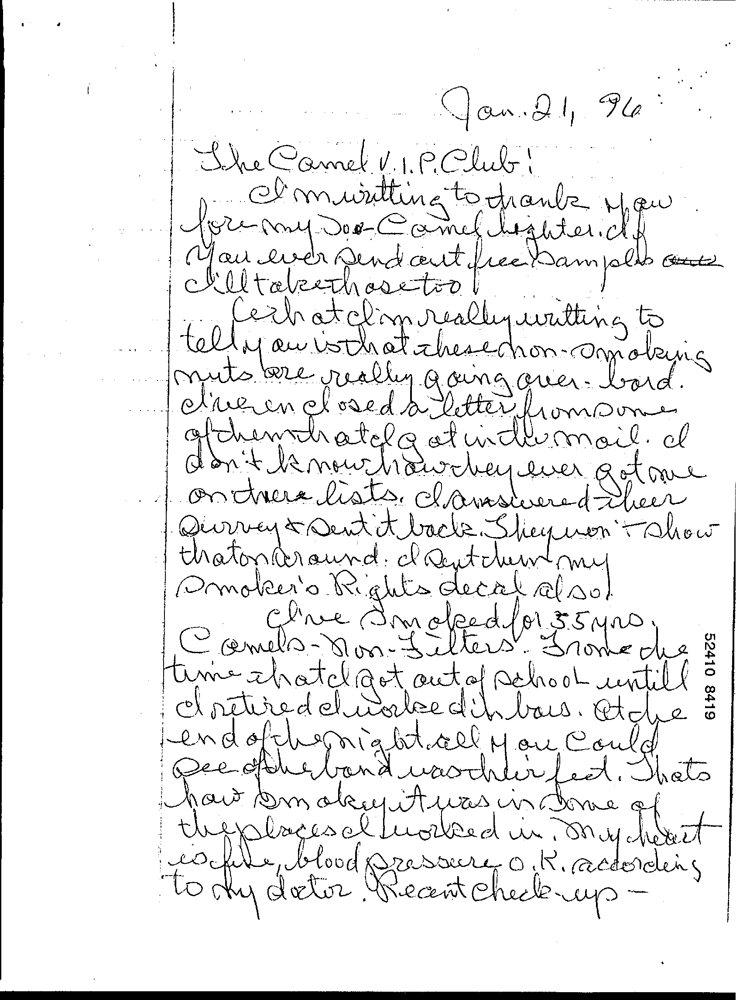 Jan. 21, 96
The Camel V.I.P. Club!
I'm writting to thank you
fore my Joe Camel lighter. If
you ever send out free samples
I'll take those too!
What I'm really writting to
tell you is that these non-smoking
nuts are really going over-bord.
I've enclosed a letter from some
of them that I got in the mail. I
don't know how they ever got me
on there lists. I answered their
survey & sent it back. They won't show
that on around. I sent them my
Smoker's Rights decal also!
I've smoked for 35 yrs.
Camels - Non-Filters. Frome the
time that I got out of school untill
I retired I worked in bars. At the
end of the night all you could
see of the band was their feet. Thats
how smokey it was in some of
the places I worked in. My heart
is fine, blood pressure O.K. according
to my doctor. Recent check-up -
52410 8419